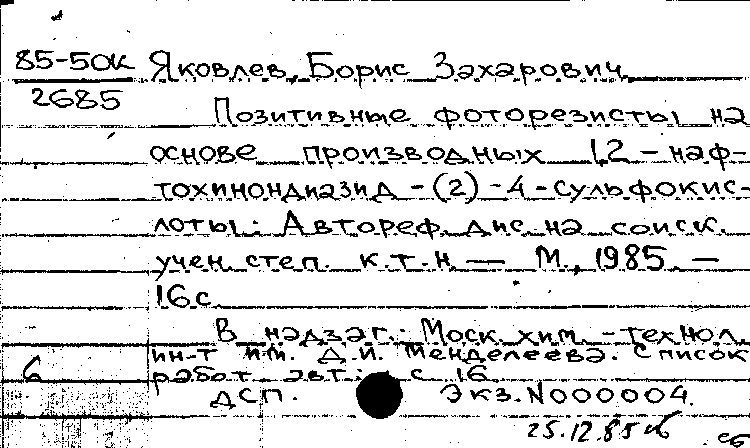 85-50к Яковлев, Борис Захарович
2685
Позитивные фоторезисты на
основе производных 1,2-наф-
тохинондиазид-(2)-4-сульфокис-
лоты: Автореф. дис. на соиск.
учен. степ. к.т.н. — М., 1985. —
16 с.
В надзаг.: Моск. хим.-технол.
ин-т им. Д.И. Менделеева. Список
6 работ авт.: с 16
ДСП. Экз. N000004.
25.12.85